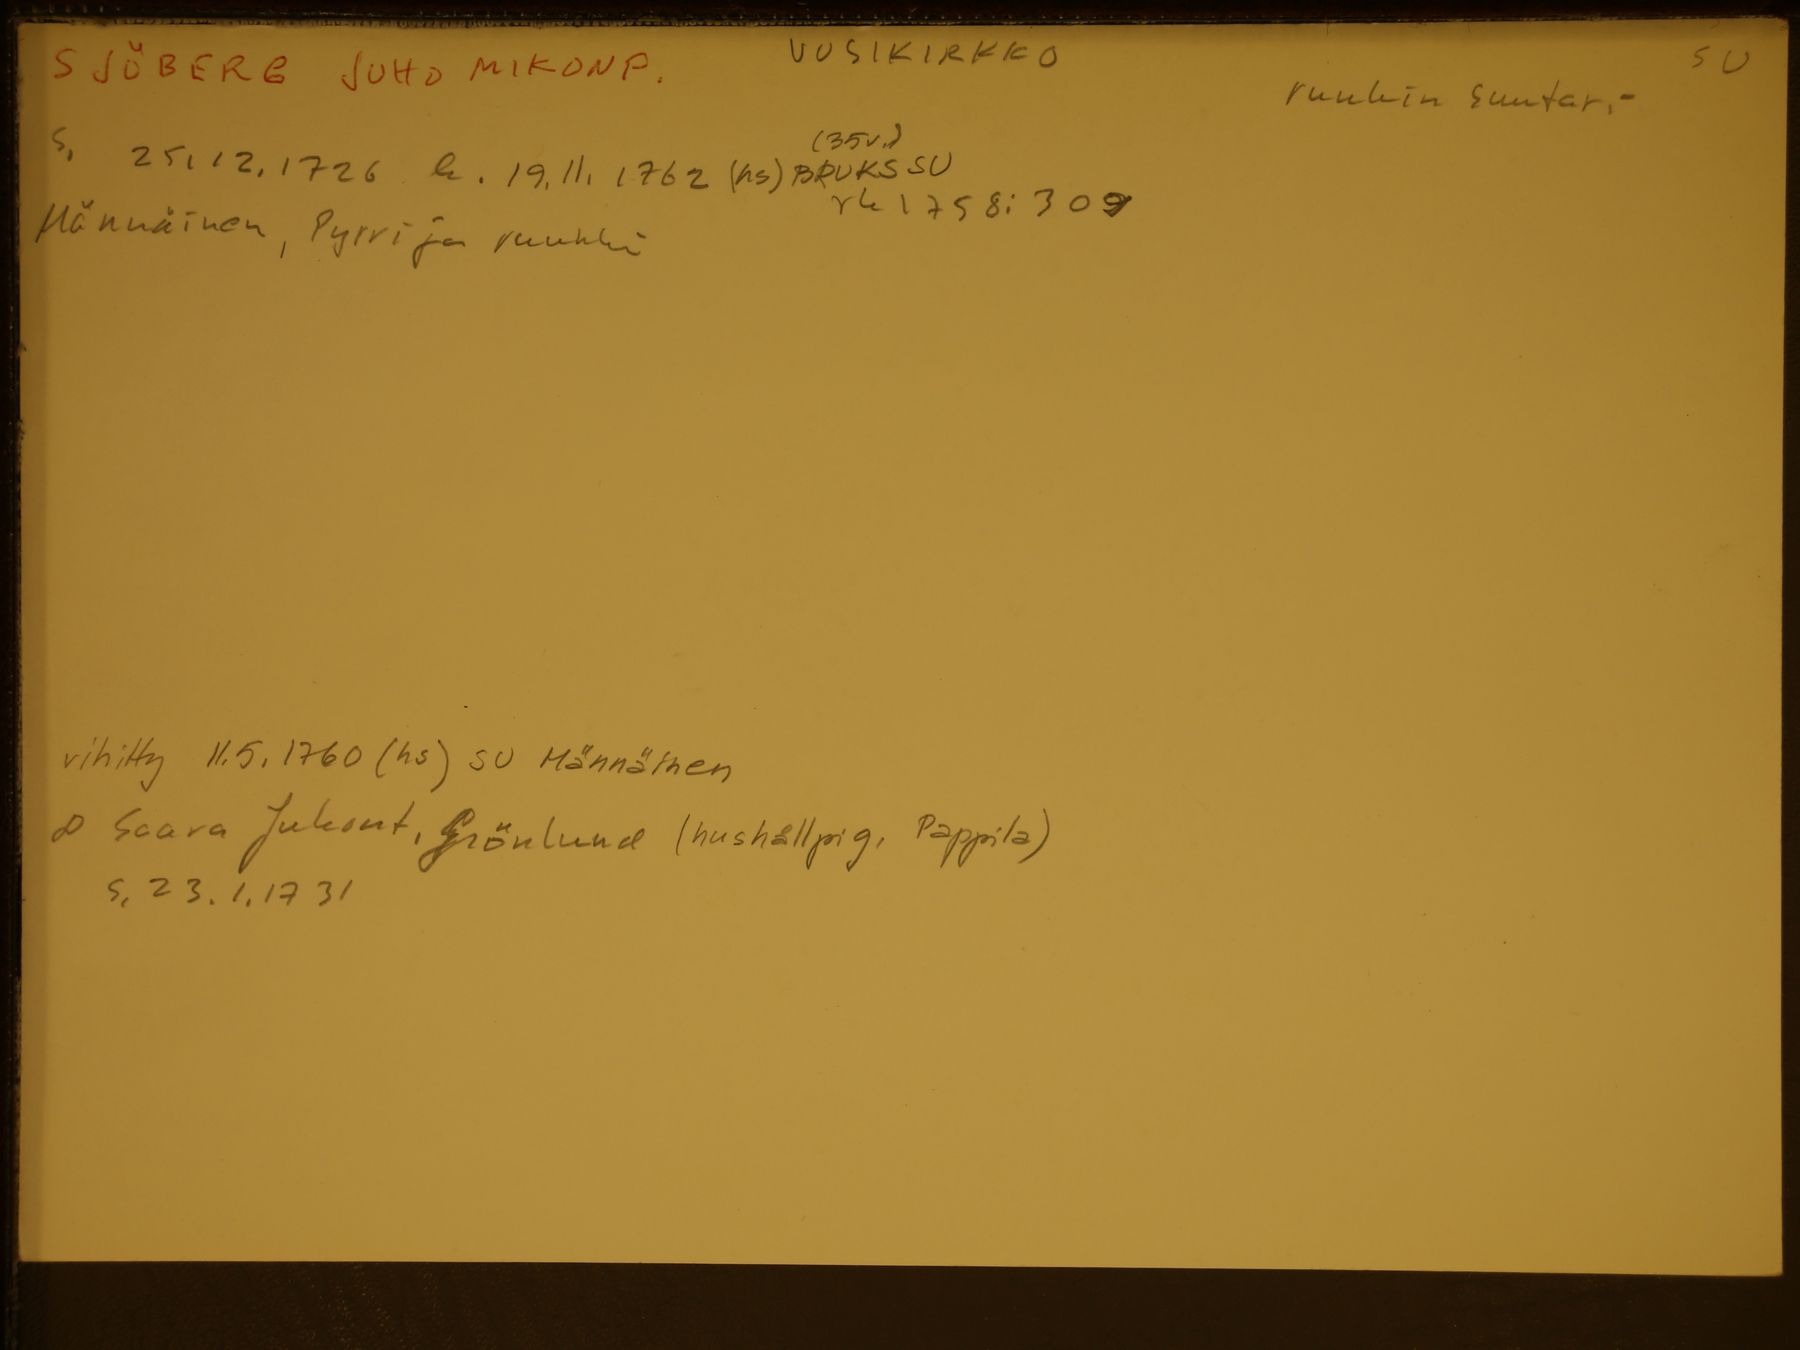 SJÖBERG JUHO MIKONP. UUSIKIRKKO SU
ruukin suutar.-
(35v.)
s. 25.12.1726 k. 19.11.1762 (hs) BRUKSSU
rk 1758: 309
Männäinen, Pyrri ja ruukki
vihitty 11.5.1760 (hs) SU Männäinen
∞ Saara Juhont. Grönlund (hushållpig. Pappila)
s. 23.1.1731